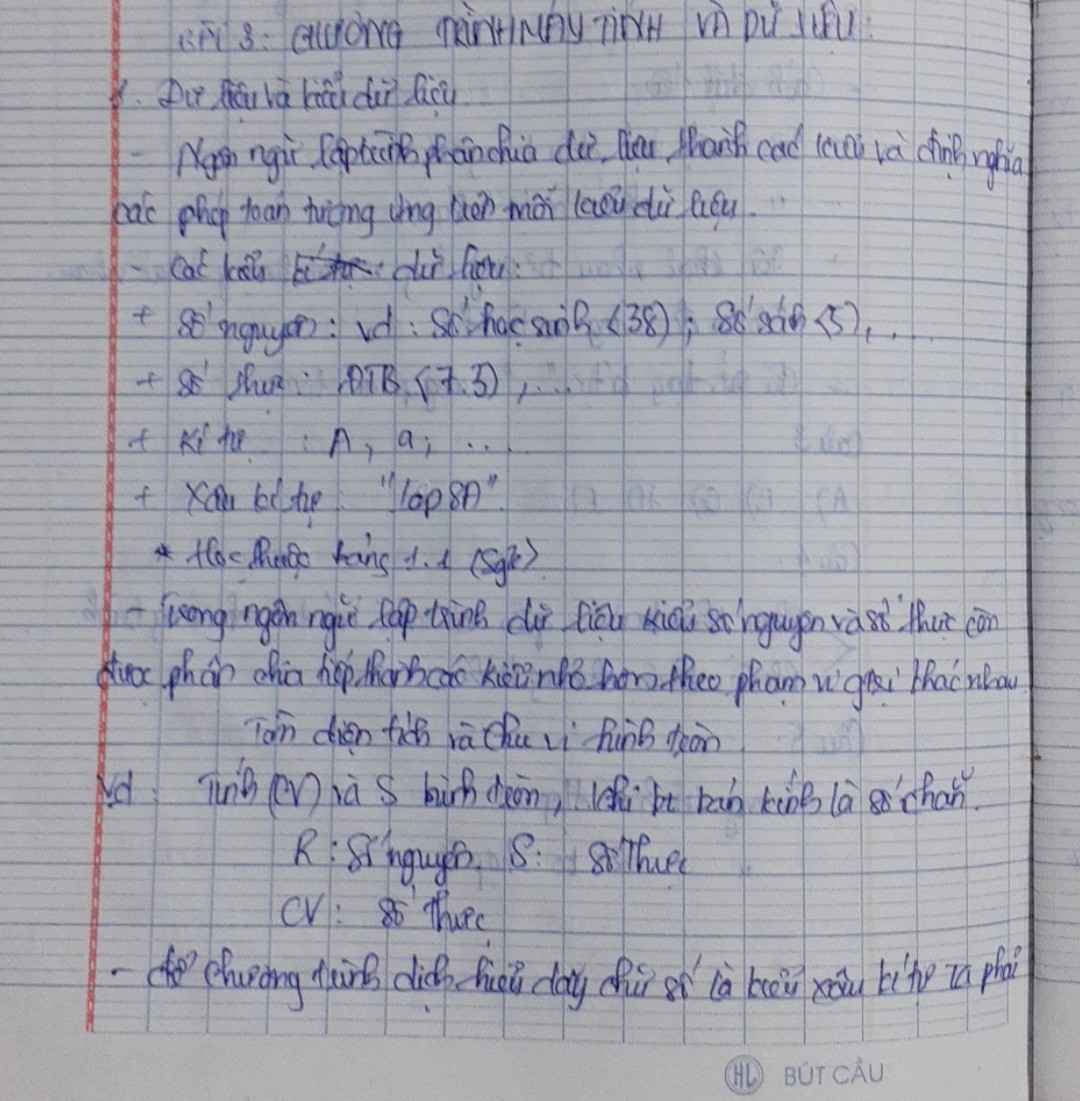 BÀI 3: CHƯƠNG TRÌNH MÁY TÍNH VÀ DỮ LIỆU.
1. Dữ liệu và kiểu dữ liệu
- Ngôn ngữ lập trình phân chia dữ liệu thành các kiểu và định nghĩa
các phép toán tương ứng trên mỗi kiểu dữ liệu.
- Các kiểu dữ liệu:
+ Số nguyên: Vd: Số học sinh (38); Số sách (5), ...
+ Số thực: ĐTB (7.3), ...
+ Kí tự : A, a, ...
+ Xâu kí tự: "lop 8A"
* Học thuộc bảng 1.1 (Sgk)
- Trong ngôn ngữ lập trình dữ liệu kiểu số nguyên và số thực còn
được phân chia tiếp thành các kiểu nhỏ hơn theo phạm vi giá trị khác nhau
Tìm diện tích và chu vi hình tròn
Vd: Tính (CV) và S hình tròn, khi bt bán kính là số chẵn.
R: Số nguyên S: Số Thực
CV: Số thực
- để chương trình dịch hiểu dãy chữ số là kiểu xâu kí tự ta phải
HL BÚT CẦU